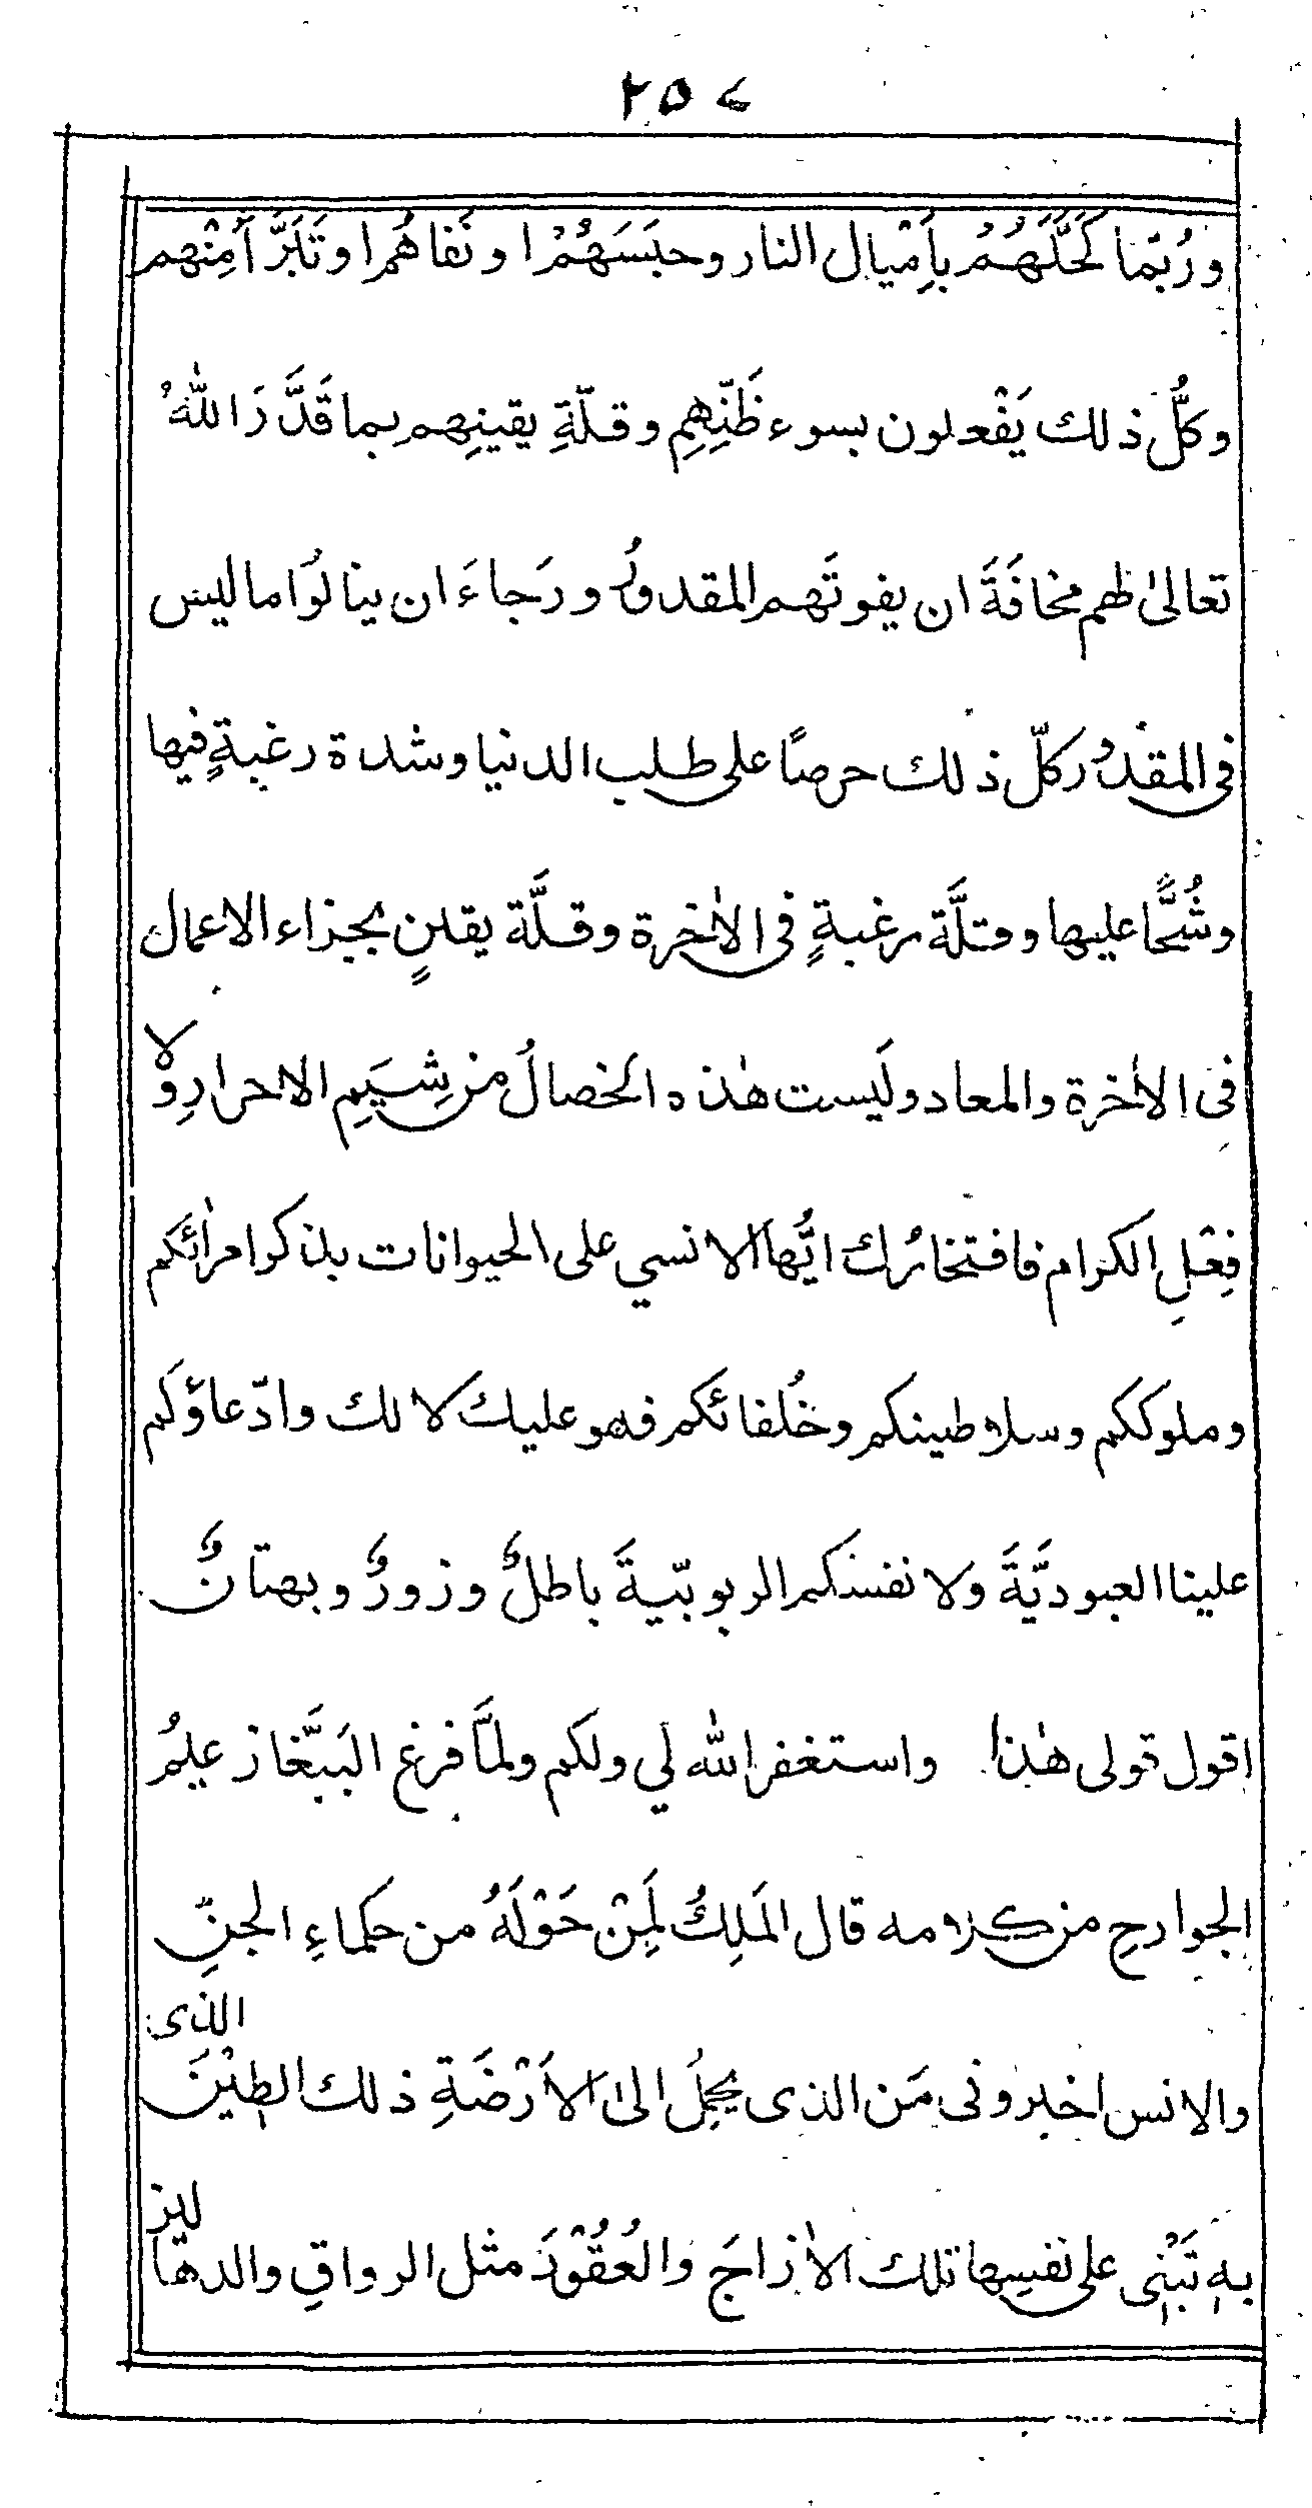 ٢٥٤
وَرُبَّمَا كَحَّلَهُمْ بِأَمْيال النار وحبَسَهُمْ او نَفاهُم او تَبَرَّأ مِنْهم
وكلُّ ذلك يَفْعلون بسوء ظَنِّهِمِ وقلّةِ يقينِهم بما قَدَّرَ اللهُ
تعالىٰ لهم مخافَةَ ان يفوتَهم المقدورُ ورَجاءَ ان ينالوُا ما ليس
فى المقدُور كلّ ذلك حرصًا على طلب الدنيا وشدة رغبةٍ فيها
وشُحًّا عليها وقلَّة رغبةٍ فى الاٰخرة وقلَّة يقينٍ بجزاء الاعمال
فى الاٰخرة والمعاد ولَيست هٰذه الخصالُ من شِيَمِ الاحرارِ ولا
فِعْلِ الكرام فافتخارُك ايُّها الانسي على الحيوانات بذكر امرائكم
وملوككم وسلاطينكم وخُلفائكم فهو عليك لا لك وادّعاؤكم
علينا العبوديَّةَ ولانفسكم الربوبّيةَ باطلٌ وزورٌ وبهتانٌ
اقول قولى هٰذا واستغفر الله لي ولكم ولمّا فرغ البَبَّغا زعيمُ
الجوارحِ من كلامه قال المَلِكُ لِمَنْ حَوْلَهُ من حكماءِ الجنِّ
والانس اخبرونى مَن الذى يحمِلُ الىٰ الاَرَضَةِ ذلك الطِيْنَ الذى
بهٖ تَبْنِى على نفسِها تلك الاٰزاجَ والعُقُوْدَ مثل الرواقِ والدهاليز